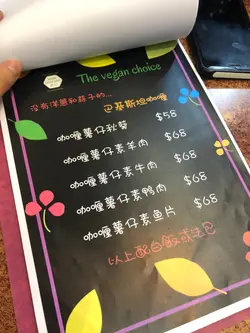 The vegan choice
沒有洋蔥和蒜子的...
巴基斯坦咖喱
咖喱薯仔秋葵 $58
咖喱薯仔素羊肉 $68
咖喱薯仔素牛肉 $68
咖喱薯仔素鴨肉 $68
咖喱薯仔素魚片 $68
以上配白飯或法包